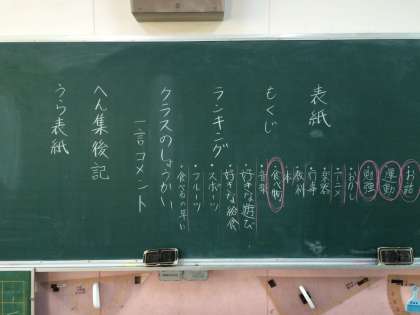 表紙
もくじ
ランキング
・お話
・運動
・勉強
・おかし
・アニメ
・楽器
・行事
・教科
・本
・食べ物
・好きな遊び
・好きな給食
・スポーツ
・フルーツ
・食べるの早い
クラスのしょうかい
一言コメント
へん集後記
うら表紙